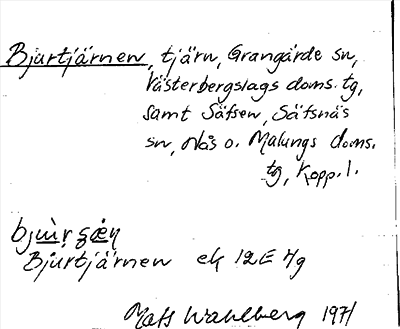 Bjurtjärnen, tjärn, Grangärde sn,
Västerbergslags doms. tg,
samt Säfsen, Säfsnäs
sn, Nås o. Malungs doms.
tg, Kopp. l.
Bjurtjärnen ek 12E 7g
Mats Wahlberg 1971